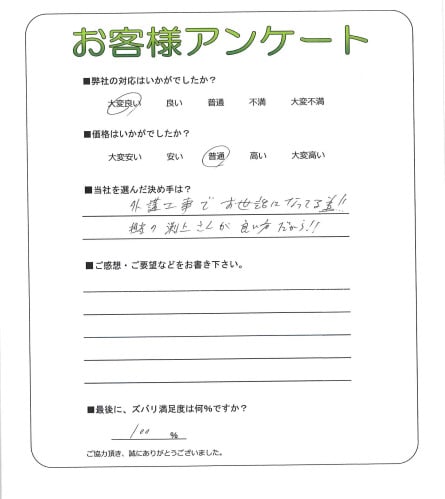 お客様アンケート
■弊社の対応はいかがでしたか?
大変良い 良い 普通 不満 大変不満
■価格はいかがでしたか?
大変安い 安い 普通 高い 大変高い
■当社を選んだ決め手は?
外溝工事でお世話になってる!!
担当の渕上さんが良い方だから!!
■ご感想・ご要望などをお書き下さい。
■最後に、ズバリ満足度は何%ですか?
100 %
ご協力頂き、誠にありがとうございました。